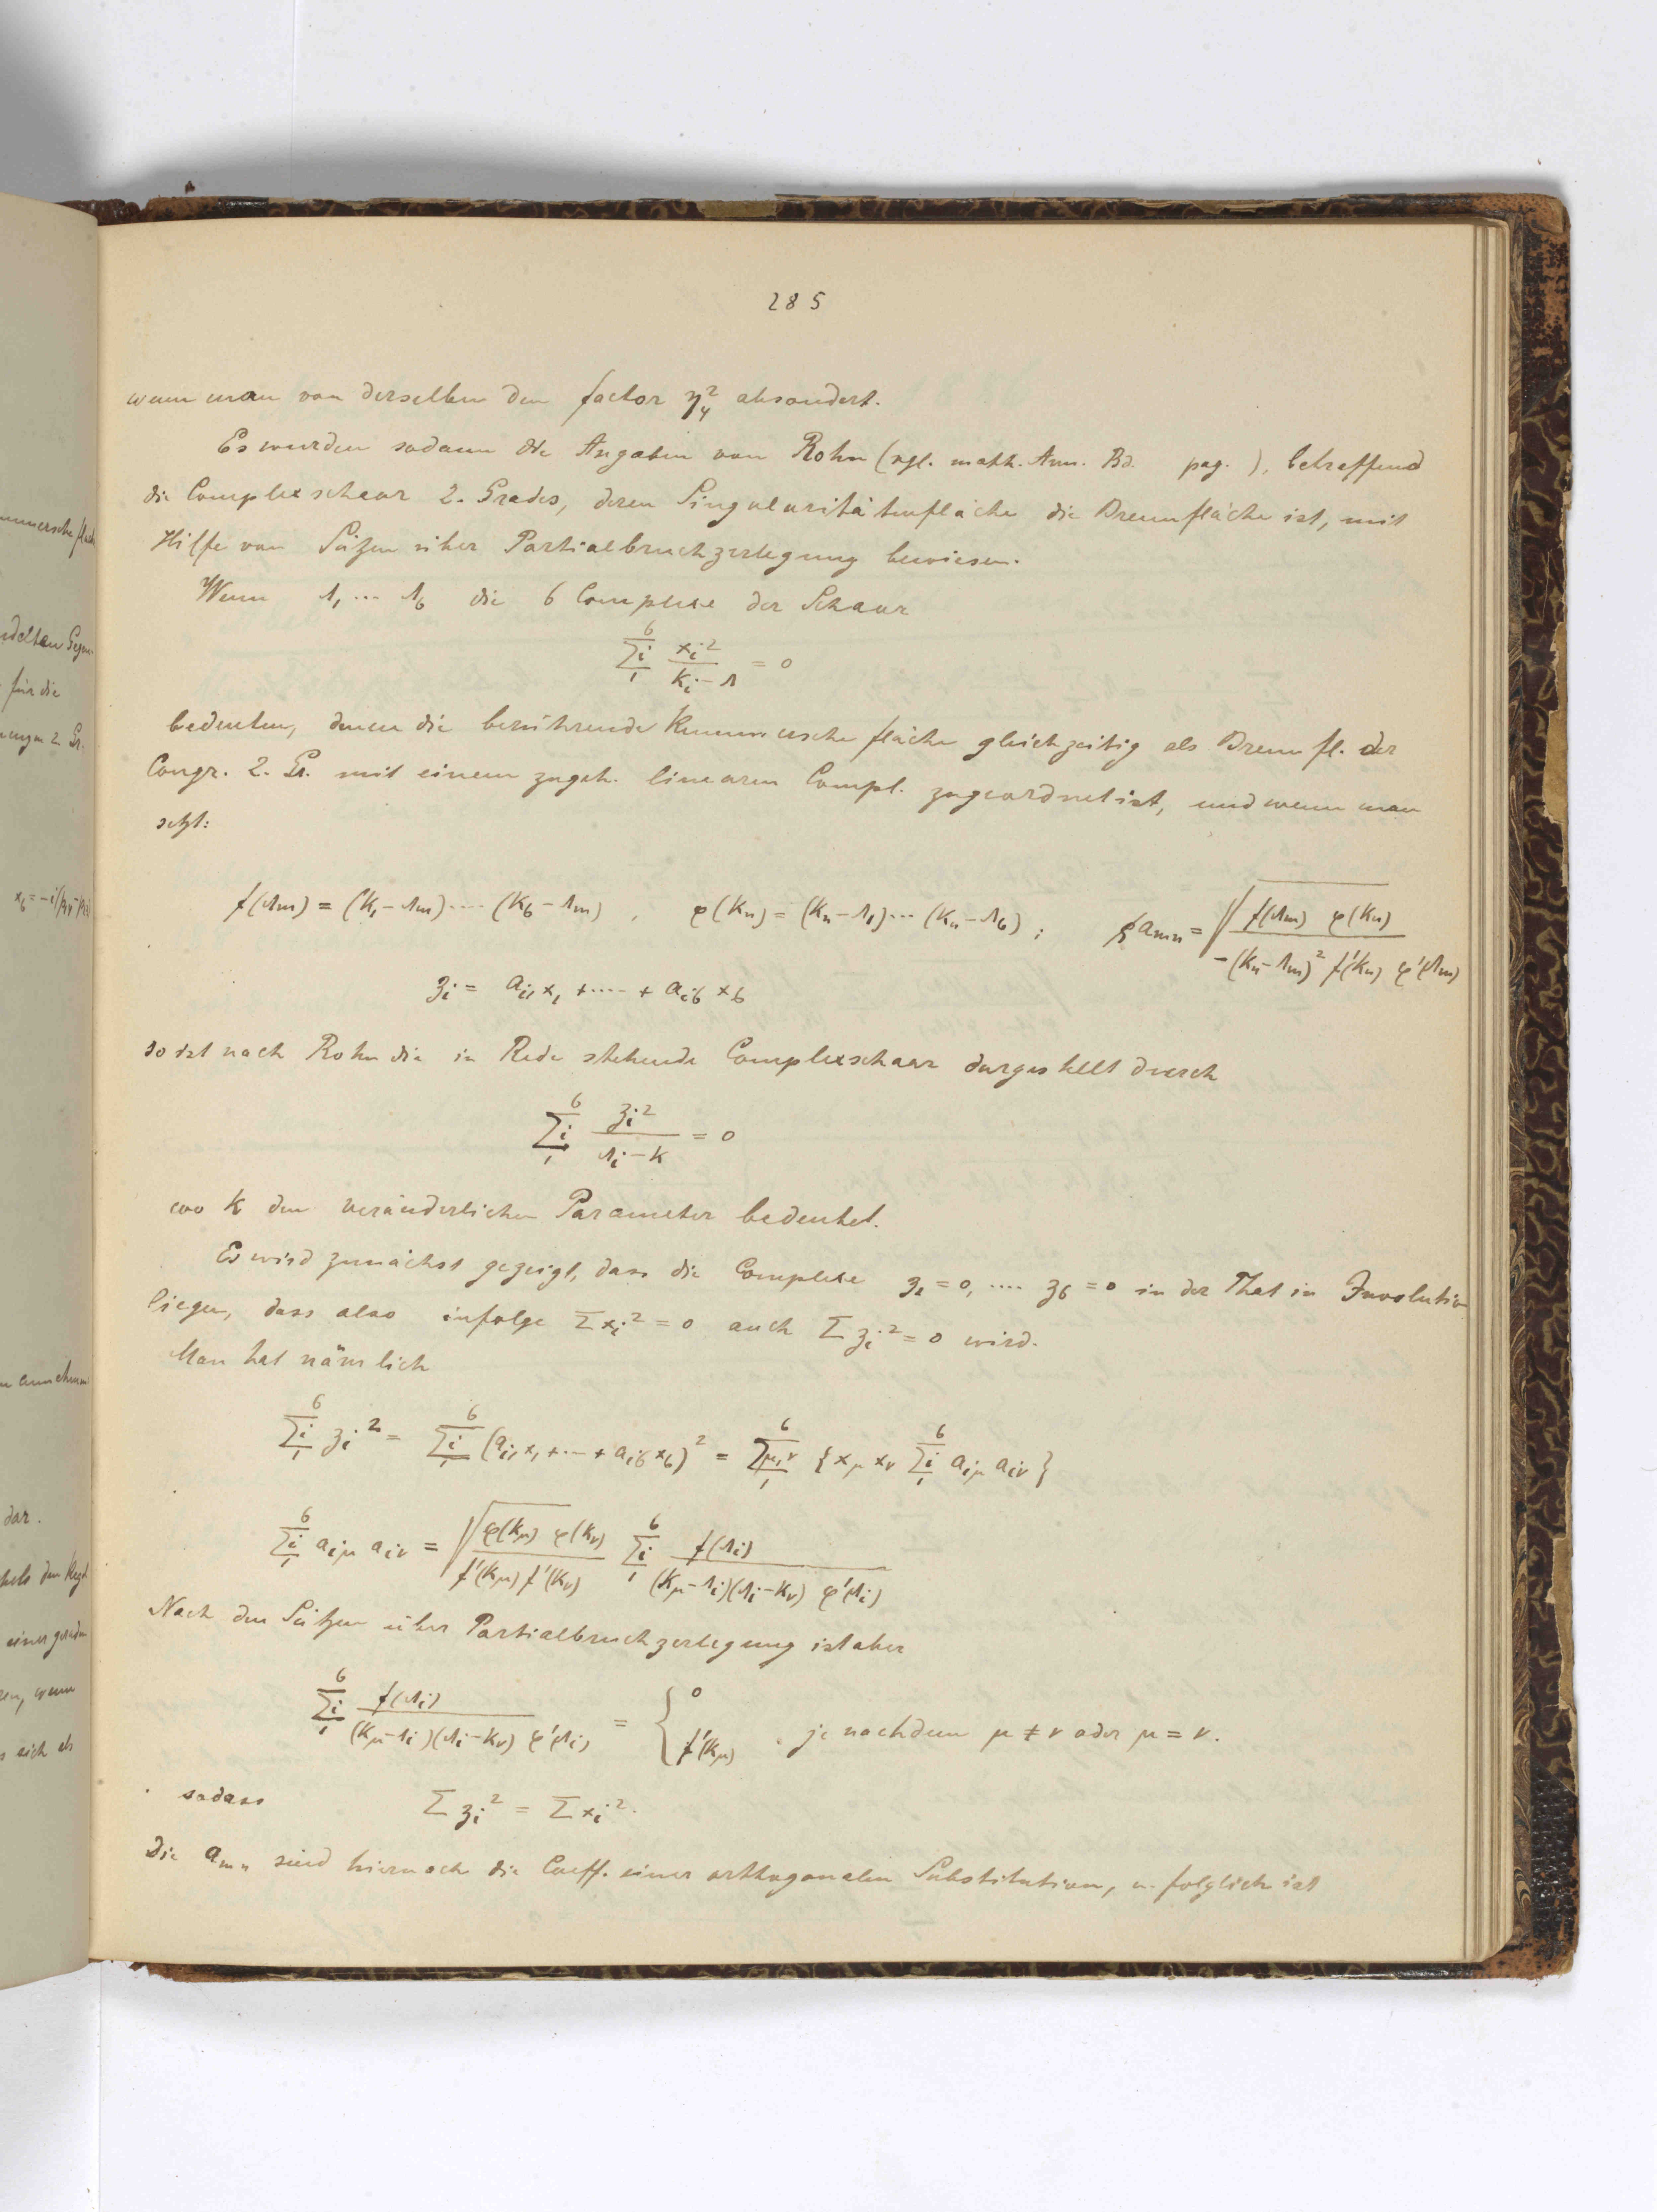 285
wenn man von derselben den factor η₄² absondert.
Es wurden sodann die Angaben von Rohn (vgl. math. Ann. Bd. pag. ), betreffend
die Complexschaar 2. Grades, deren Singularitätenfläche die Brennfläche ist, mit
Hilfe von Sätzen über Partialbruchzerlegung bewiesen.
Wenn λ₁ ... λ₆ die 6 Complexe der Schaar
∑ᵢ₁⁶ xᵢ² / (kᵢ − λ) = 0
bedeuten, denen die berührende Kummersche fläche gleichzeitig als Brennfl. der
Congr. 2. Gr. mit einem zugeh. linearen Compl. zugeordnet ist, und wenn man
setzt:
f(λₘ) = (k₁ − λₘ) .... (k₆ − λₘ) , φ(kₙ) = (kₙ − λ₁) ... (kₙ − λ₆) ; aₘₙ = √( f(λₘ) φ(kₙ) / −(kₙ − λₘ)² f'(kₙ) φ'(λₘ) )
zᵢ = aᵢ₁x₁ + .... + aᵢ₆x₆
so ist nach Rohn die in Rede stehende Complexschaar dargestellt durch
∑ᵢ₁⁶ zᵢ² / (λᵢ − k) = 0
wo k den veränderlichen Parameter bedeutet.
Es wird zunächst gezeigt, dass die Complexe z₁ = 0, .... z₆ = 0 in der That in Involution
liegen, dass also infolge Σxᵢ² = 0 auch Σzᵢ² = 0 wird.
Man hat nämlich
∑ᵢ₁⁶ zᵢ² = ∑ᵢ₁⁶ (aᵢ₁x₁ + ... + aᵢ₆x₆)² = ∑μ,ν₁⁶ {xμ xν ∑ᵢ₁⁶ aᵢμ aᵢν}
∑ᵢ₁⁶ aᵢμ aᵢν = √( φ(kμ) φ(kν) / f'(kμ) f'(kν) ) ∑ᵢ₁⁶ f(λᵢ) / (kμ − λᵢ)(λᵢ − kν) φ'(λᵢ)
Nach den Sätzen über Partialbruchzerlegung ist aber
∑ᵢ₁⁶ f(λᵢ) / (kμ − λᵢ)(λᵢ − kν) φ'(λᵢ) = { 0 f'(kμ) je nachdem μ ≠ ν oder μ = ν.
sodass Σ zᵢ² = Σ xᵢ².
Die aₘₙ sind hiernach die Coeff. einer orthogonalen Substitution, u. folglich ist